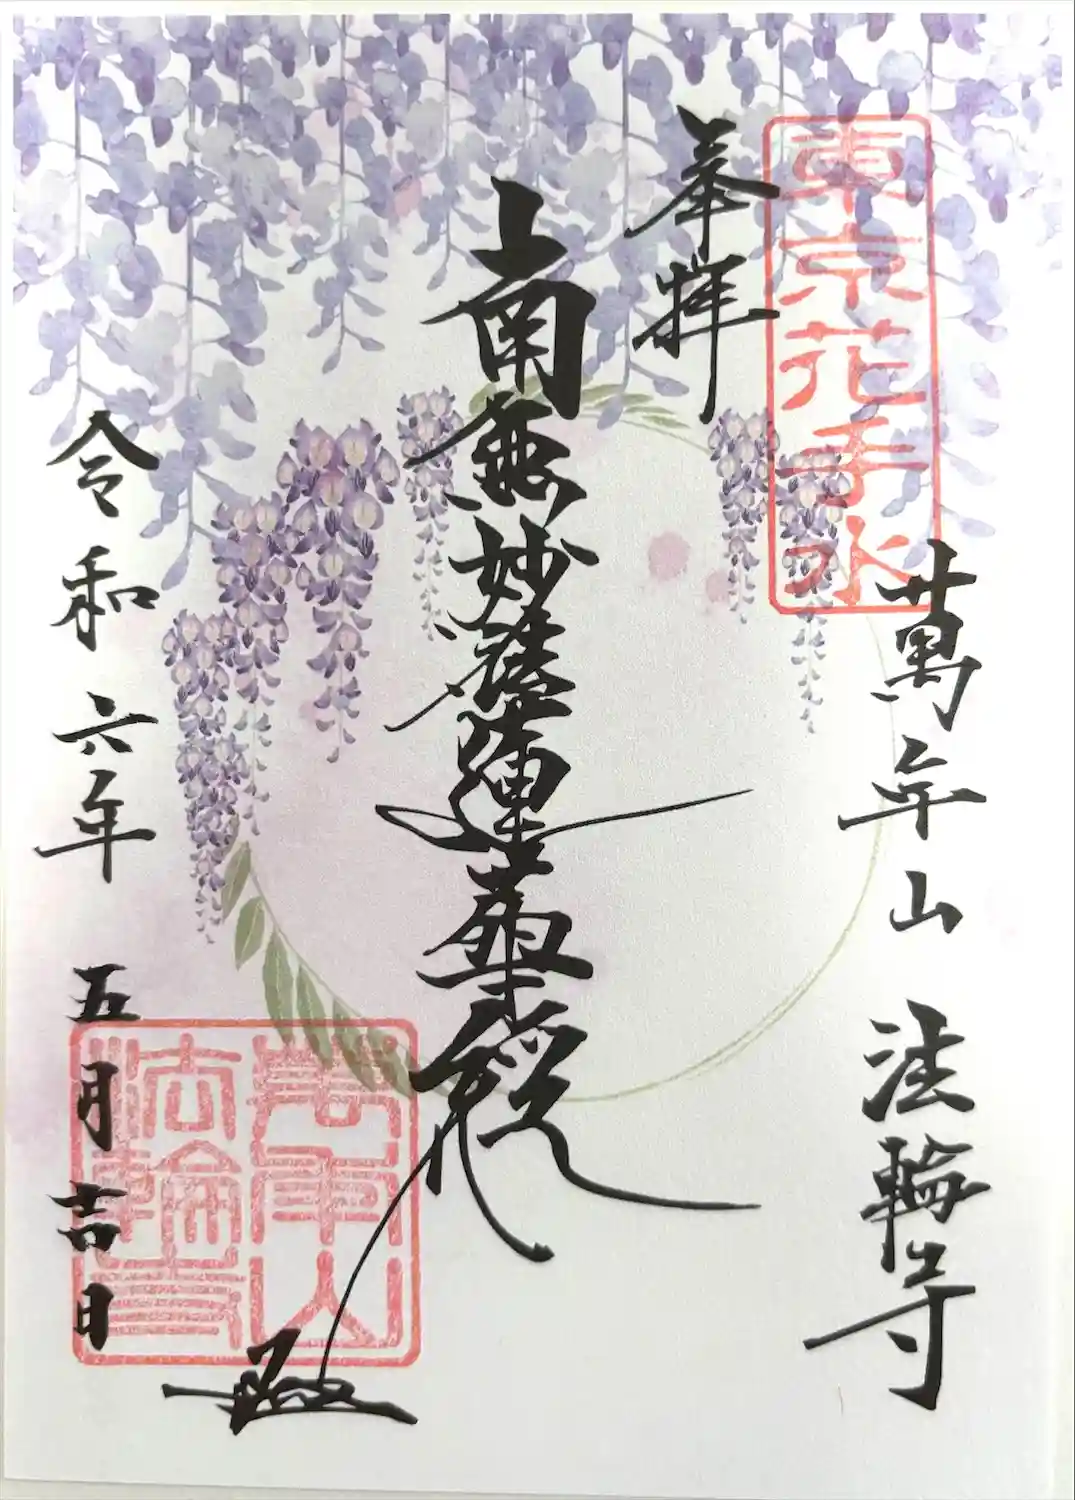 東京花手水
奉拝
萬年山 法輪寺
南無妙法蓮華経
令和六年 五月吉日
萬年山
法輪寺